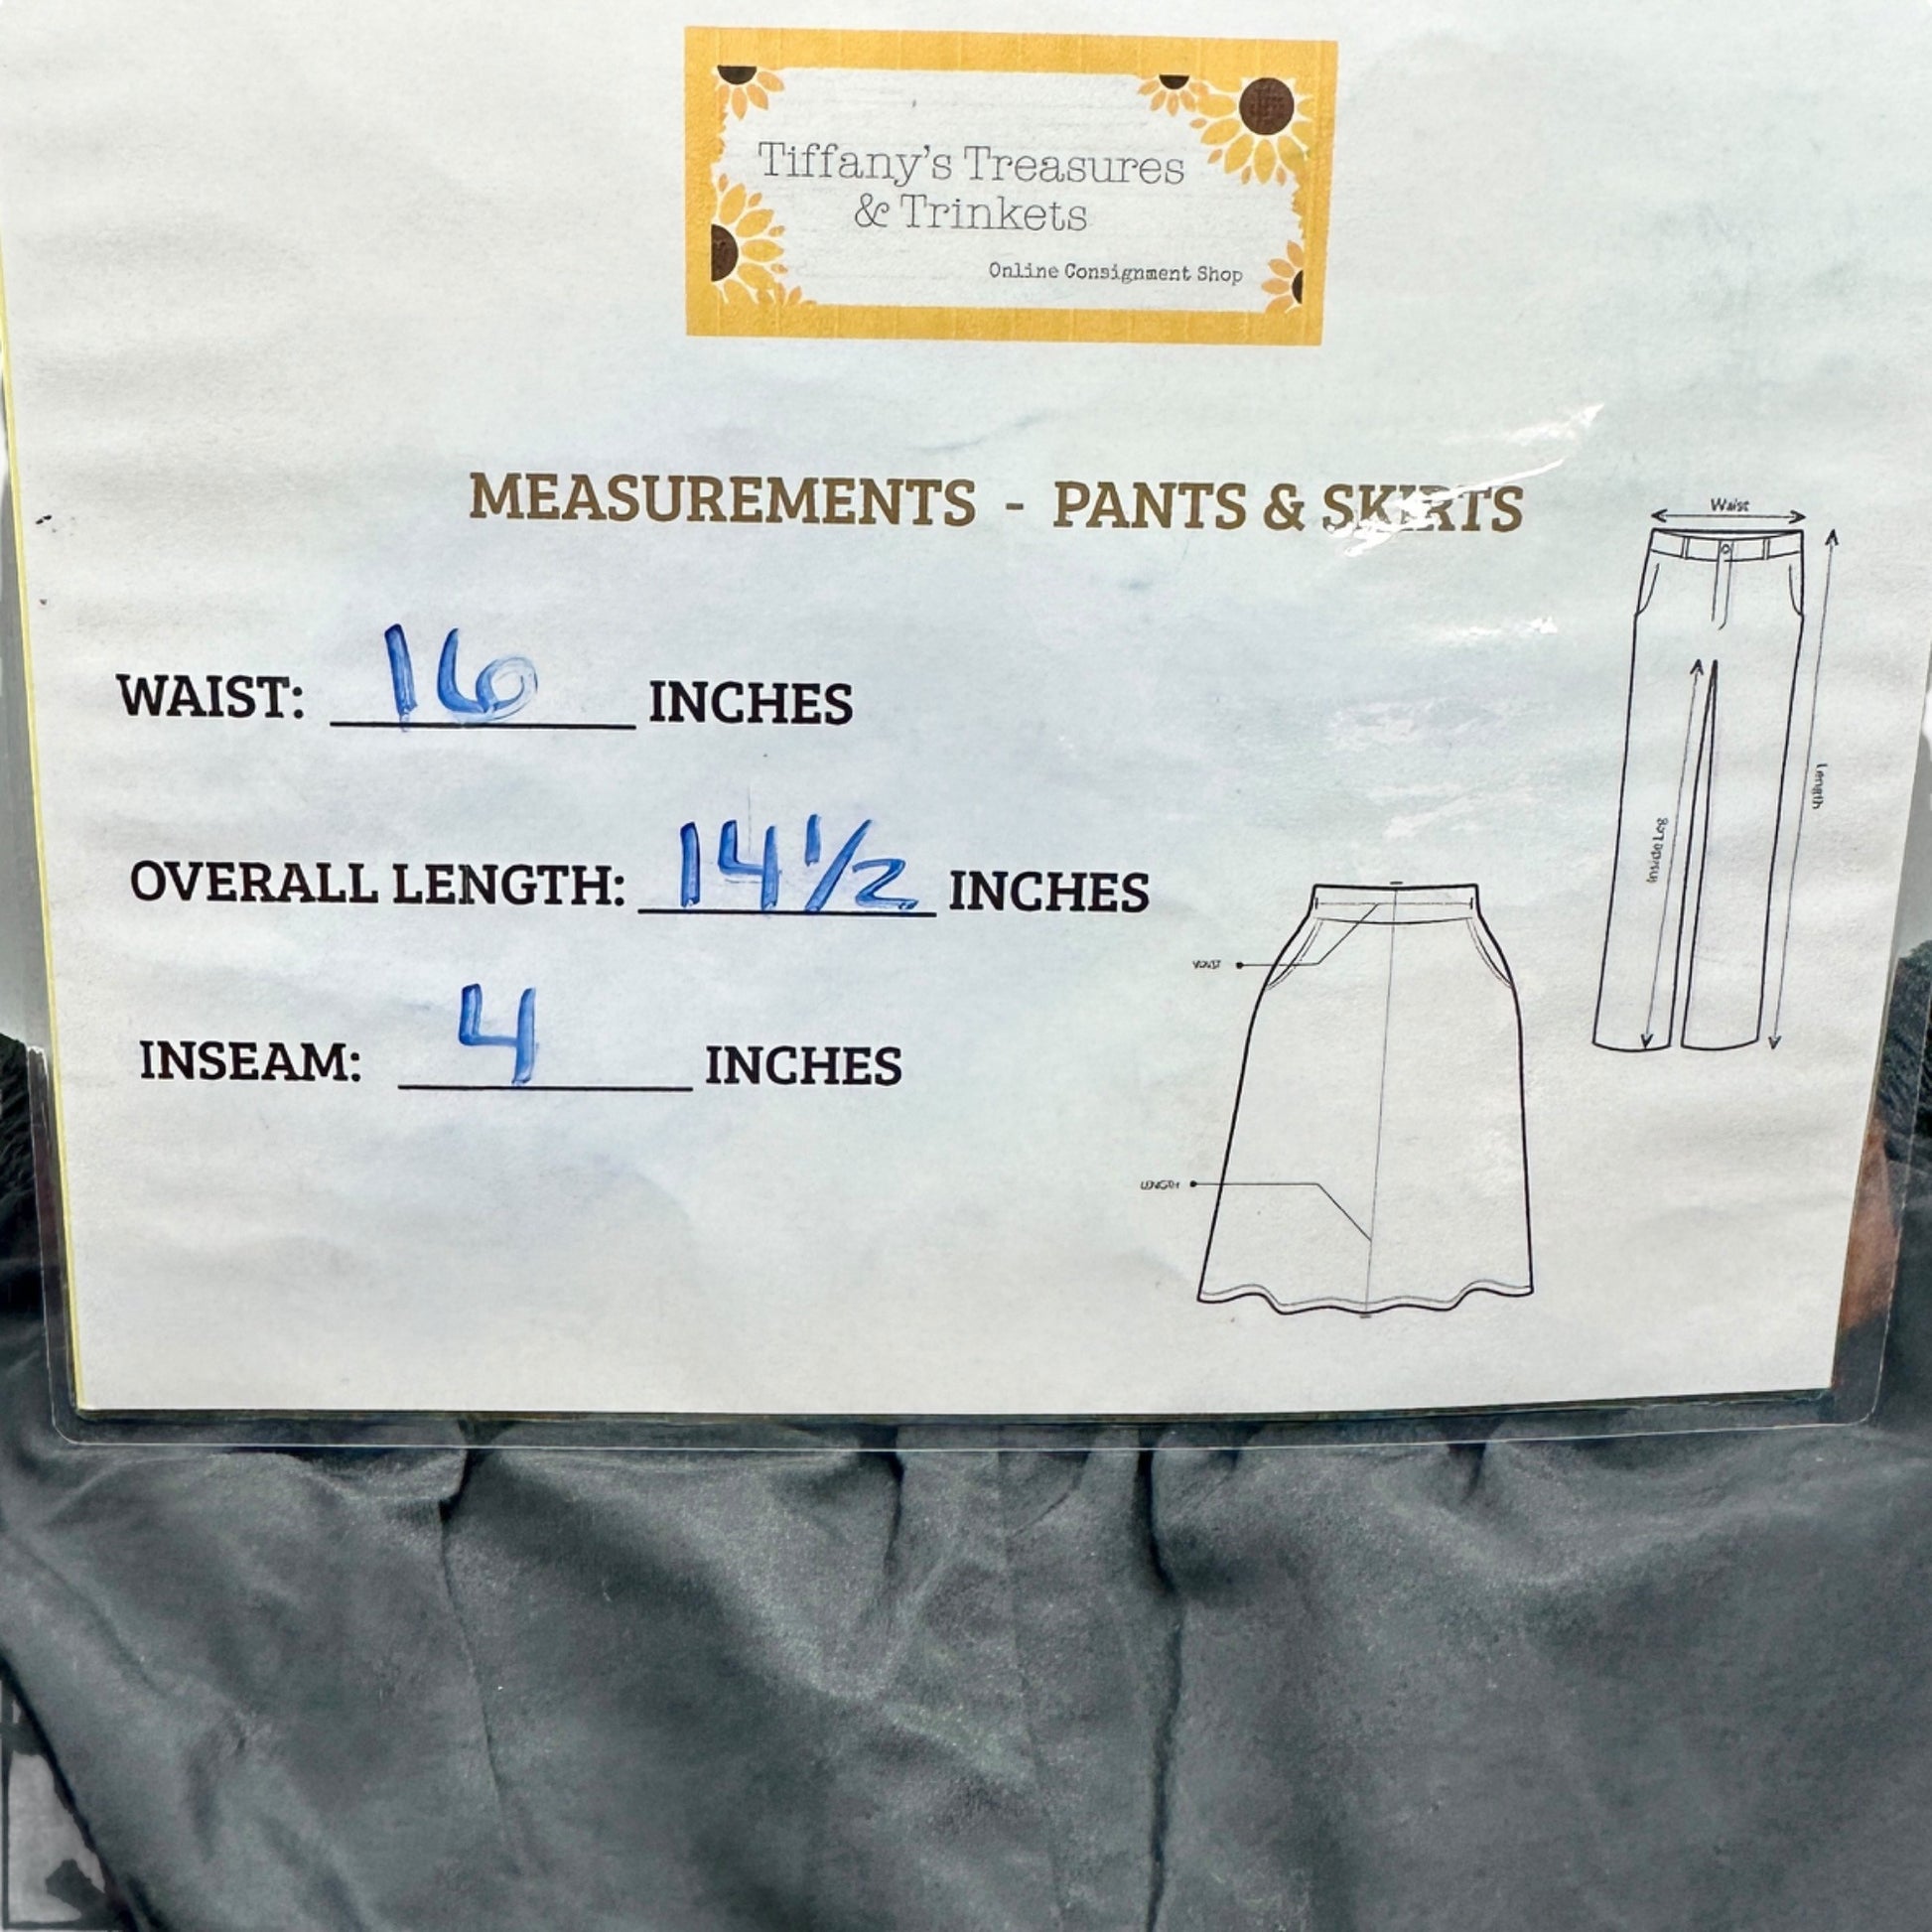 Tiffany's Treasures
& Trinkets
Online Consignment Shop
MEASUREMENTS - PANTS & SKIRTS
Waist
WAIST: 16 INCHES
Length
OVERALL LENGTH: 14 1/2 INCHES
INSEAM: 4 INCHES
LENGTH